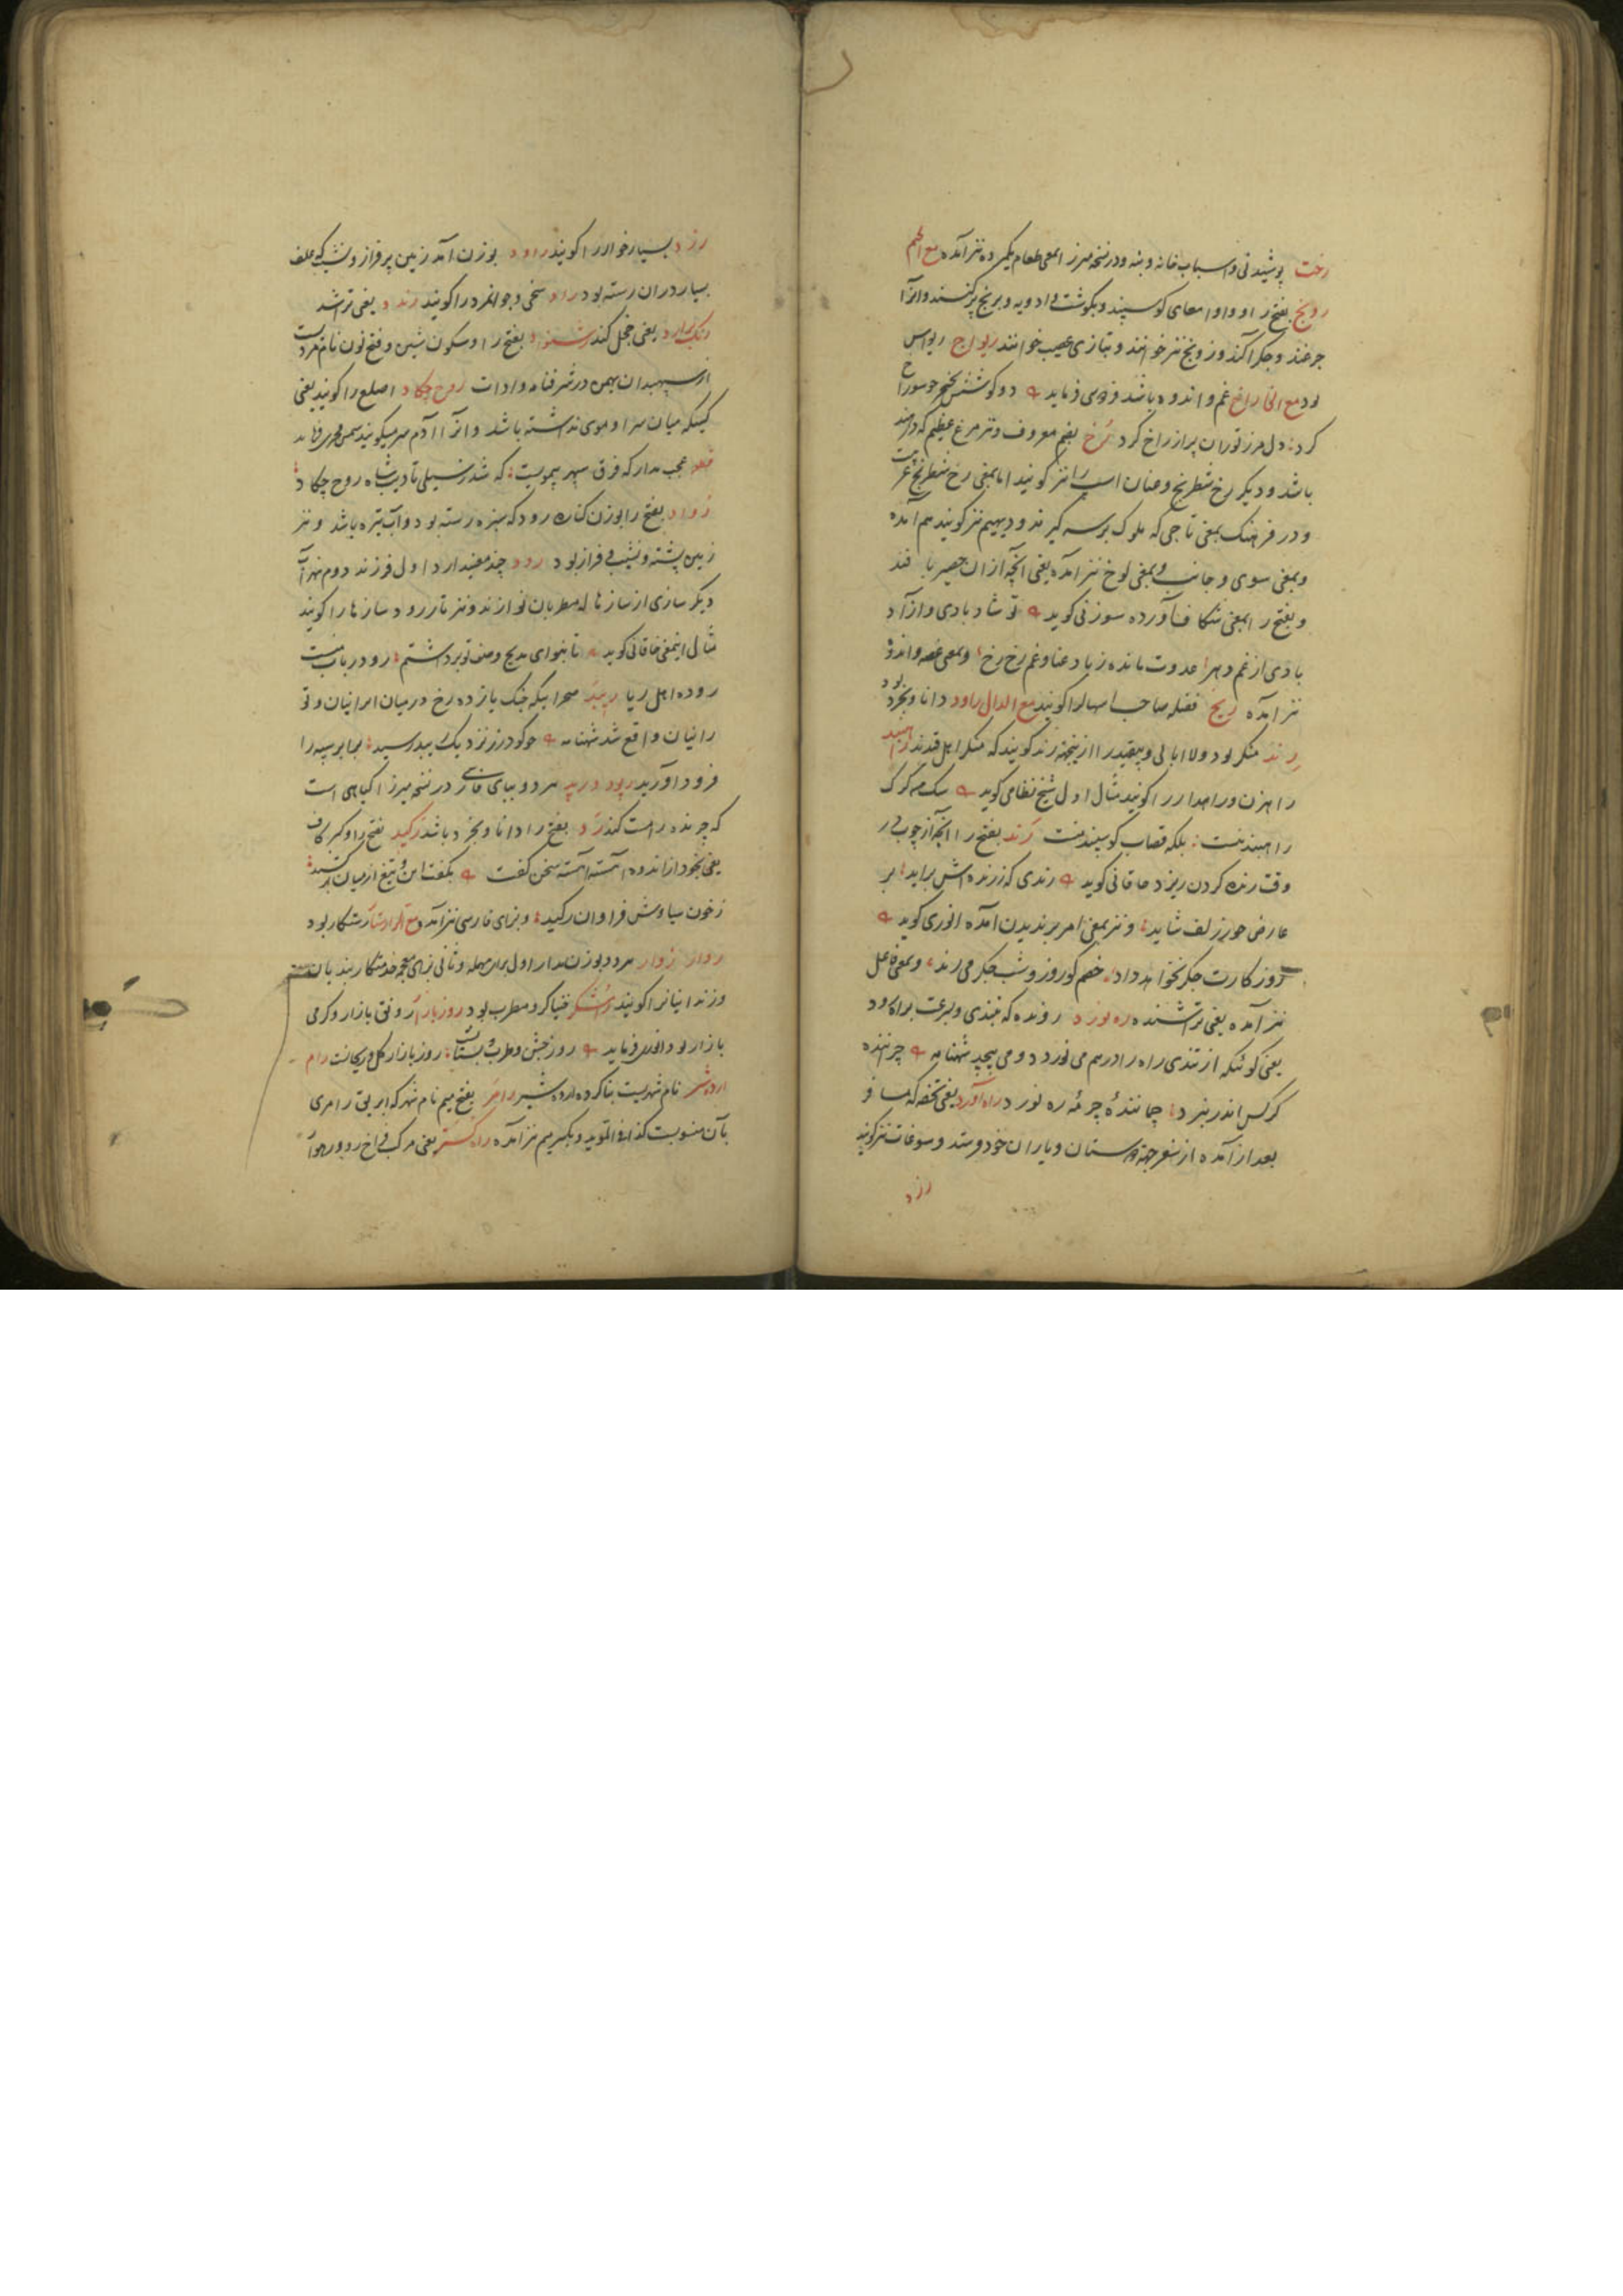 رخت پوشیدنی و اسباب خانه و بنه و در نسخه میرزا بمعنی طعام یکمرده نیز آمده مع الجیم
رونج بفتح را و واو امعای گوسپند و بگوشت و ادویه و برنج پر کنند و آنرا
جرغند و جگرآکند و زونج نیز خوانند و بتازی عصیب خوانند ریواج ریواس
بود مع الخا راخ غم و اندوه باشد فردوسی فرماید
کرد دل مرز توران پر از راخ کرد رخ بضم معروف و نیز مرغ عظیم که
باشد و دیگر رخ شطرنج و عنان اسب را نیز گویند اما بمعنی رخ شطرنج
و در فرهنگ بمعنی تاجی که ملوک بر سر گیرند و دیهیم نیز گویند هم آمده
و بمعنی سوی و جانب و بمعنی لوخ نیز آمده یعنی آنچه از آن حصیر بافند
و بفتح را بمعنی شکاف آورده سوزنی گوید تو شاد بادی و آزاد
بادی از غم دهر عدوت مانده ز باد عنا و غم رخ رخ و بمعنی غصه و اندوه
نیز آمده ریخ فضله صاحب اسهال را گویند مع الدال راود دانا و بخرد بود
رند منکر بود و لاابالی و بیقید را ازینجهة رند گویند که منکر اهل قیدند راهبند
راهزن و راهدار را گویند مثال اول شیخ نظامی گوید
راهبند نیست بلکه قصاب گوسپند نیست رند بفتح را آنچه از چوب در
وقت رنده کردن ریزد خاقانی گوید رندی که ز رنده‌اش براید بر
عارض حور زلف شاید و نیز بمعنی امر برندیدن آمده انوری گوید
روزگارت جگر نخواهد داد خصم کو روز و شب جگر می‌رند و بمعنی فاعل
نیز آمده یعنی تراشنده ره نورد رونده که بتندی و سرعت براه رود
یعنی گوئیکه از تندی راه را درهم می نوردد و می پیچد شهنامه چرنده
کرگس اندر نبرد چمانندهٔ چرمهٔ ره نورد راه آورد یعنی تحفه که مسافر
بعد از آمدن از سفر جهة دوستان و یاران خود فرستد و سوغات نیز گویند
رزد
رزد بسیارخوار را گویند راود بوزن آمد زمین پر فراز و نشیب که علف
بسیار در آن رسته بود راد سخی و جوانمرد را گویند رندد یعنی تراشد
رنگ آرد یعنی خجل کند رشنواد بفتح را و سکون شین و فتح نون نام مردیست
از سپهبدان بهمن در شرفنامه و ادات روح چکاد اصلع را گویند یعنی
کسیکه میان سر او موی نداشته باشد و آنرا آدم سر میگویند
عجب مدار که فرق سپهر بیمویست که شد ز سیلی تادیب شاه روح چکاد
رواد بفتح را بوزن کناره رود که سبزه رسته بود و آب تیره باشد و نیز
زمین پشته و نشیب و فراز بود رود چند معنی دارد اول فرزند دوم نهر آب
دیگر سازی از سازها که مطربان نوازند و نیز تار رود سازها را گویند
مثال اینمعنی خاقانی گوید تا بنوای مدیح وصف تو برداشتم رود رباب منست
روده اهل ریا ریبد صحرائیکه جنگ یازده رخ در میان ایرانیان و تو
رانیان واقع شد شهنامه چو گودرز نزدیک ریبد رسید
فرود آورید ریود و ریبد هر دو ببای فارسی در نسخه میرزا گیاهی است
که چرنده را مست کند رد بفتح را دانا و بخرد باشد رکید بفتح را و کسر کاف
یعنی بخود از اندوه آهسته آهسته سخن گفت بگفت این و تیغ از میان برکشید
ز خون سیاوش فراوان رکید و بزای فارسی نیز آمده مع الراء رستار رستگار بود
روار زوار هر دو بوزن مدار اول برای مهمله و ثانی بزای معجمه خدمتکار بندیان
و زندانیانرا گویند رامشگر خنیاگر و مطرب بود روزبازار رونق بازار و گرمی
بازار بود انوری فرماید روز جشن و طرب بستانست روز بازار گل و ریحانست رام
اردشیر نام شهریست بناکرده اردشیر رامر بفتح میم نام شهر که ابریق رامری
بآن منسوبست کذا فی المؤید و بکسر میم نیز آمده راه گستر یعنی مرکب فراخ رو و رهوار